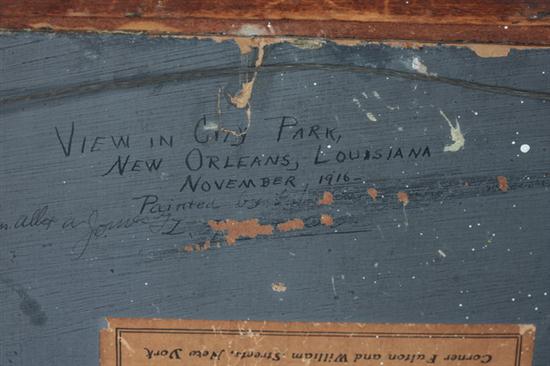 VIEW IN CITY PARK,
NEW ORLEANS, LOUISIANA
NOVEMBER, 1916-
Painted by
Corner Fulton and William Streets, New York